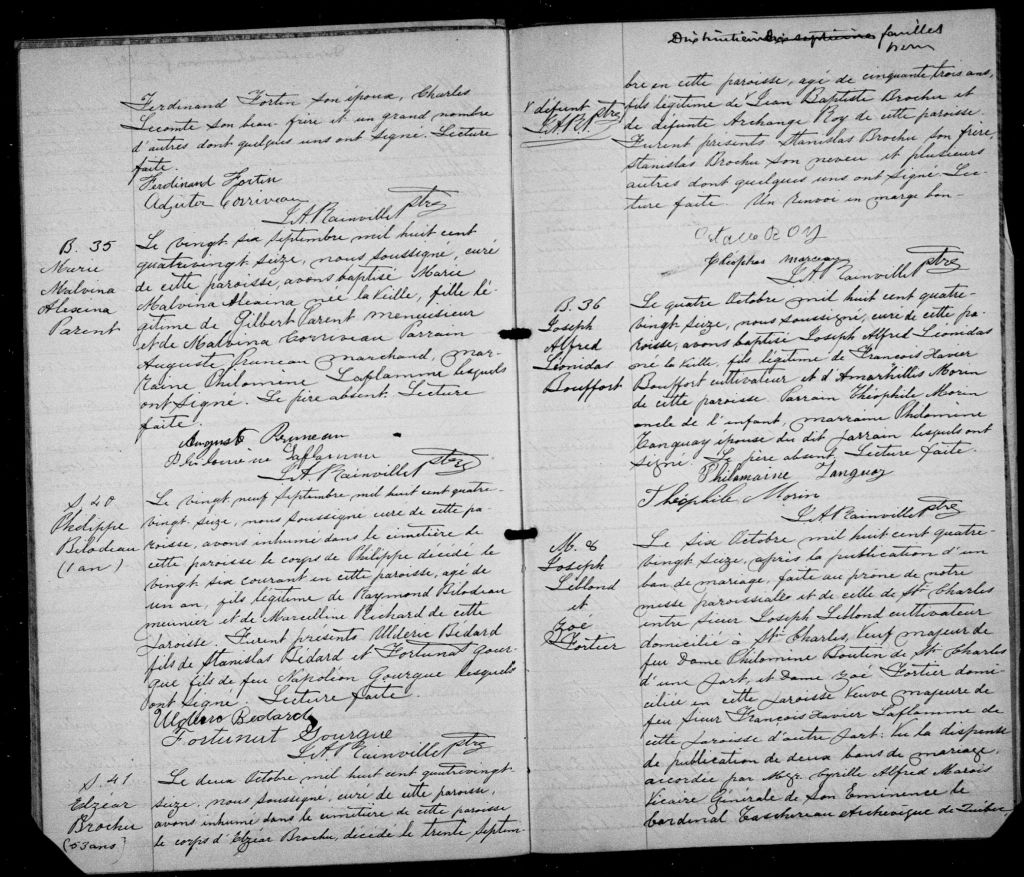 Ferdinand Fortin son époux, Charles
Lecomte son beau-frère et un grand nombre
d'autres dont quelques uns ont signé. Lecture
faite.
Ferdinand Fortin
Adjutor Corriveau
L.A. Rainville ptre
B. 35
Marie
Malvina
Alexina
Parent
Le vingt six septembre mil huit cent
quatrevingt seize, nous soussigné, curé
de cette paroisse, avons baptisé Marie
Malvina Alexina née la veille, fille lé-
gitime de Gilbert Parent menuisieur
et de Malvina Corriveau Parrain
Auguste Pruneau marchand, mar-
raine Philomine Laflamme lesquels
ont signé. Le père absent. Lecture
faite.
August Pruneau
Philomine Laflamme
L.A. Rainville ptre
S. 40
Philippe
Bilodeau
(1 an)
Le vingt neuf Septembre mil huit cent quatre-
vingt seize, nous soussigné curé de cette pa-
roisse, avons inhumé dans le cimetière de
cette paroisse le corps de Philippe décédé le
vingt six courant en cette paroisse, agé de
un an, fils légitime de Raymond Bilodeau
meunier et de Marcelline Richard de cette
paroisse. Furent présents Ulderic Bédard
fils de Stanislas Bédard et Fortunat Gour-
gue fils de feu Napoléon Gourgue lesquels
ont signé. Lecture faite.
Ulderic Bedard
Fortunat Gourgue
L.A. Rainville ptre
S. 41
Elzéar
Brochu
(53 ans)
Le deux Octobre mil huit cent quatrevingt-
seize, nous soussigné, curé de cette paroisse,
avons inhumé dans le cimetière de cette paroisse
le corps d'Elzéar Brochu, décédé le trente Septem-
feuilles
bre en cette paroisse, agé de cinquante trois ans,
fils légitime de V Jean Baptiste Brochu et
de défunte Archange Roy de cette paroisse.
Furent présents Stanislas Brochu son frère,
Stanislas Brochu son neveu et plusieurs
autres dont quelques uns ont signé. Lec-
ture faite. Un renvoi en marge bon-
V défunt
L.A.R. ptre
ROY
Théophas
L.A. Rainville ptre
B. 36
Joseph
Alfred
Léonidas
Bouffort
Le quatre Octobre mil huit cent quatre-
vingt seize, nous soussigné, curé de cette pa-
roisse, avons baptisé Joseph Alfred Léonidas
né la veille, fils légitime de François Xavier
Bouffort cultivateur et d'Amarhillis Morin
de cette paroisse. Parrain Théophile Morin
oncle de l'enfant, marraine Philomine
Tanguay épouse du dit parrain lesquels ont
signé. Le père absent, Lecture faite.
Philomaine Tanguay
Théophile Morin
L.A. Rainville ptre
M. 8
Joseph
Leblond
et
Zoé
Fortier
Le six Octobre mil huit cent quatre-
vingt seize, après la publication d'un
ban de mariage, faite au prône de notre
messe paroissiale et de celle de St Charles
entre Sieur Joseph Leblond cultivateur
domicilié à St. Charles, veuf majeur de
feu Dame Philomine Boutin de St. Charles
d'une part, et Dame Zoé Fortier domi-
ciliée en cette paroisse Veuve majeure de
feu Sieur François Xavier Laflamme de
cette paroisse d'autre part: Vu la dispense
de publication de deux bans de mariage,
accordée par Mgr. Cyrille Alfred Marois
Vicaire Générale de Son Eminence le
Cardinal Taschereau Archevêque de Québec,